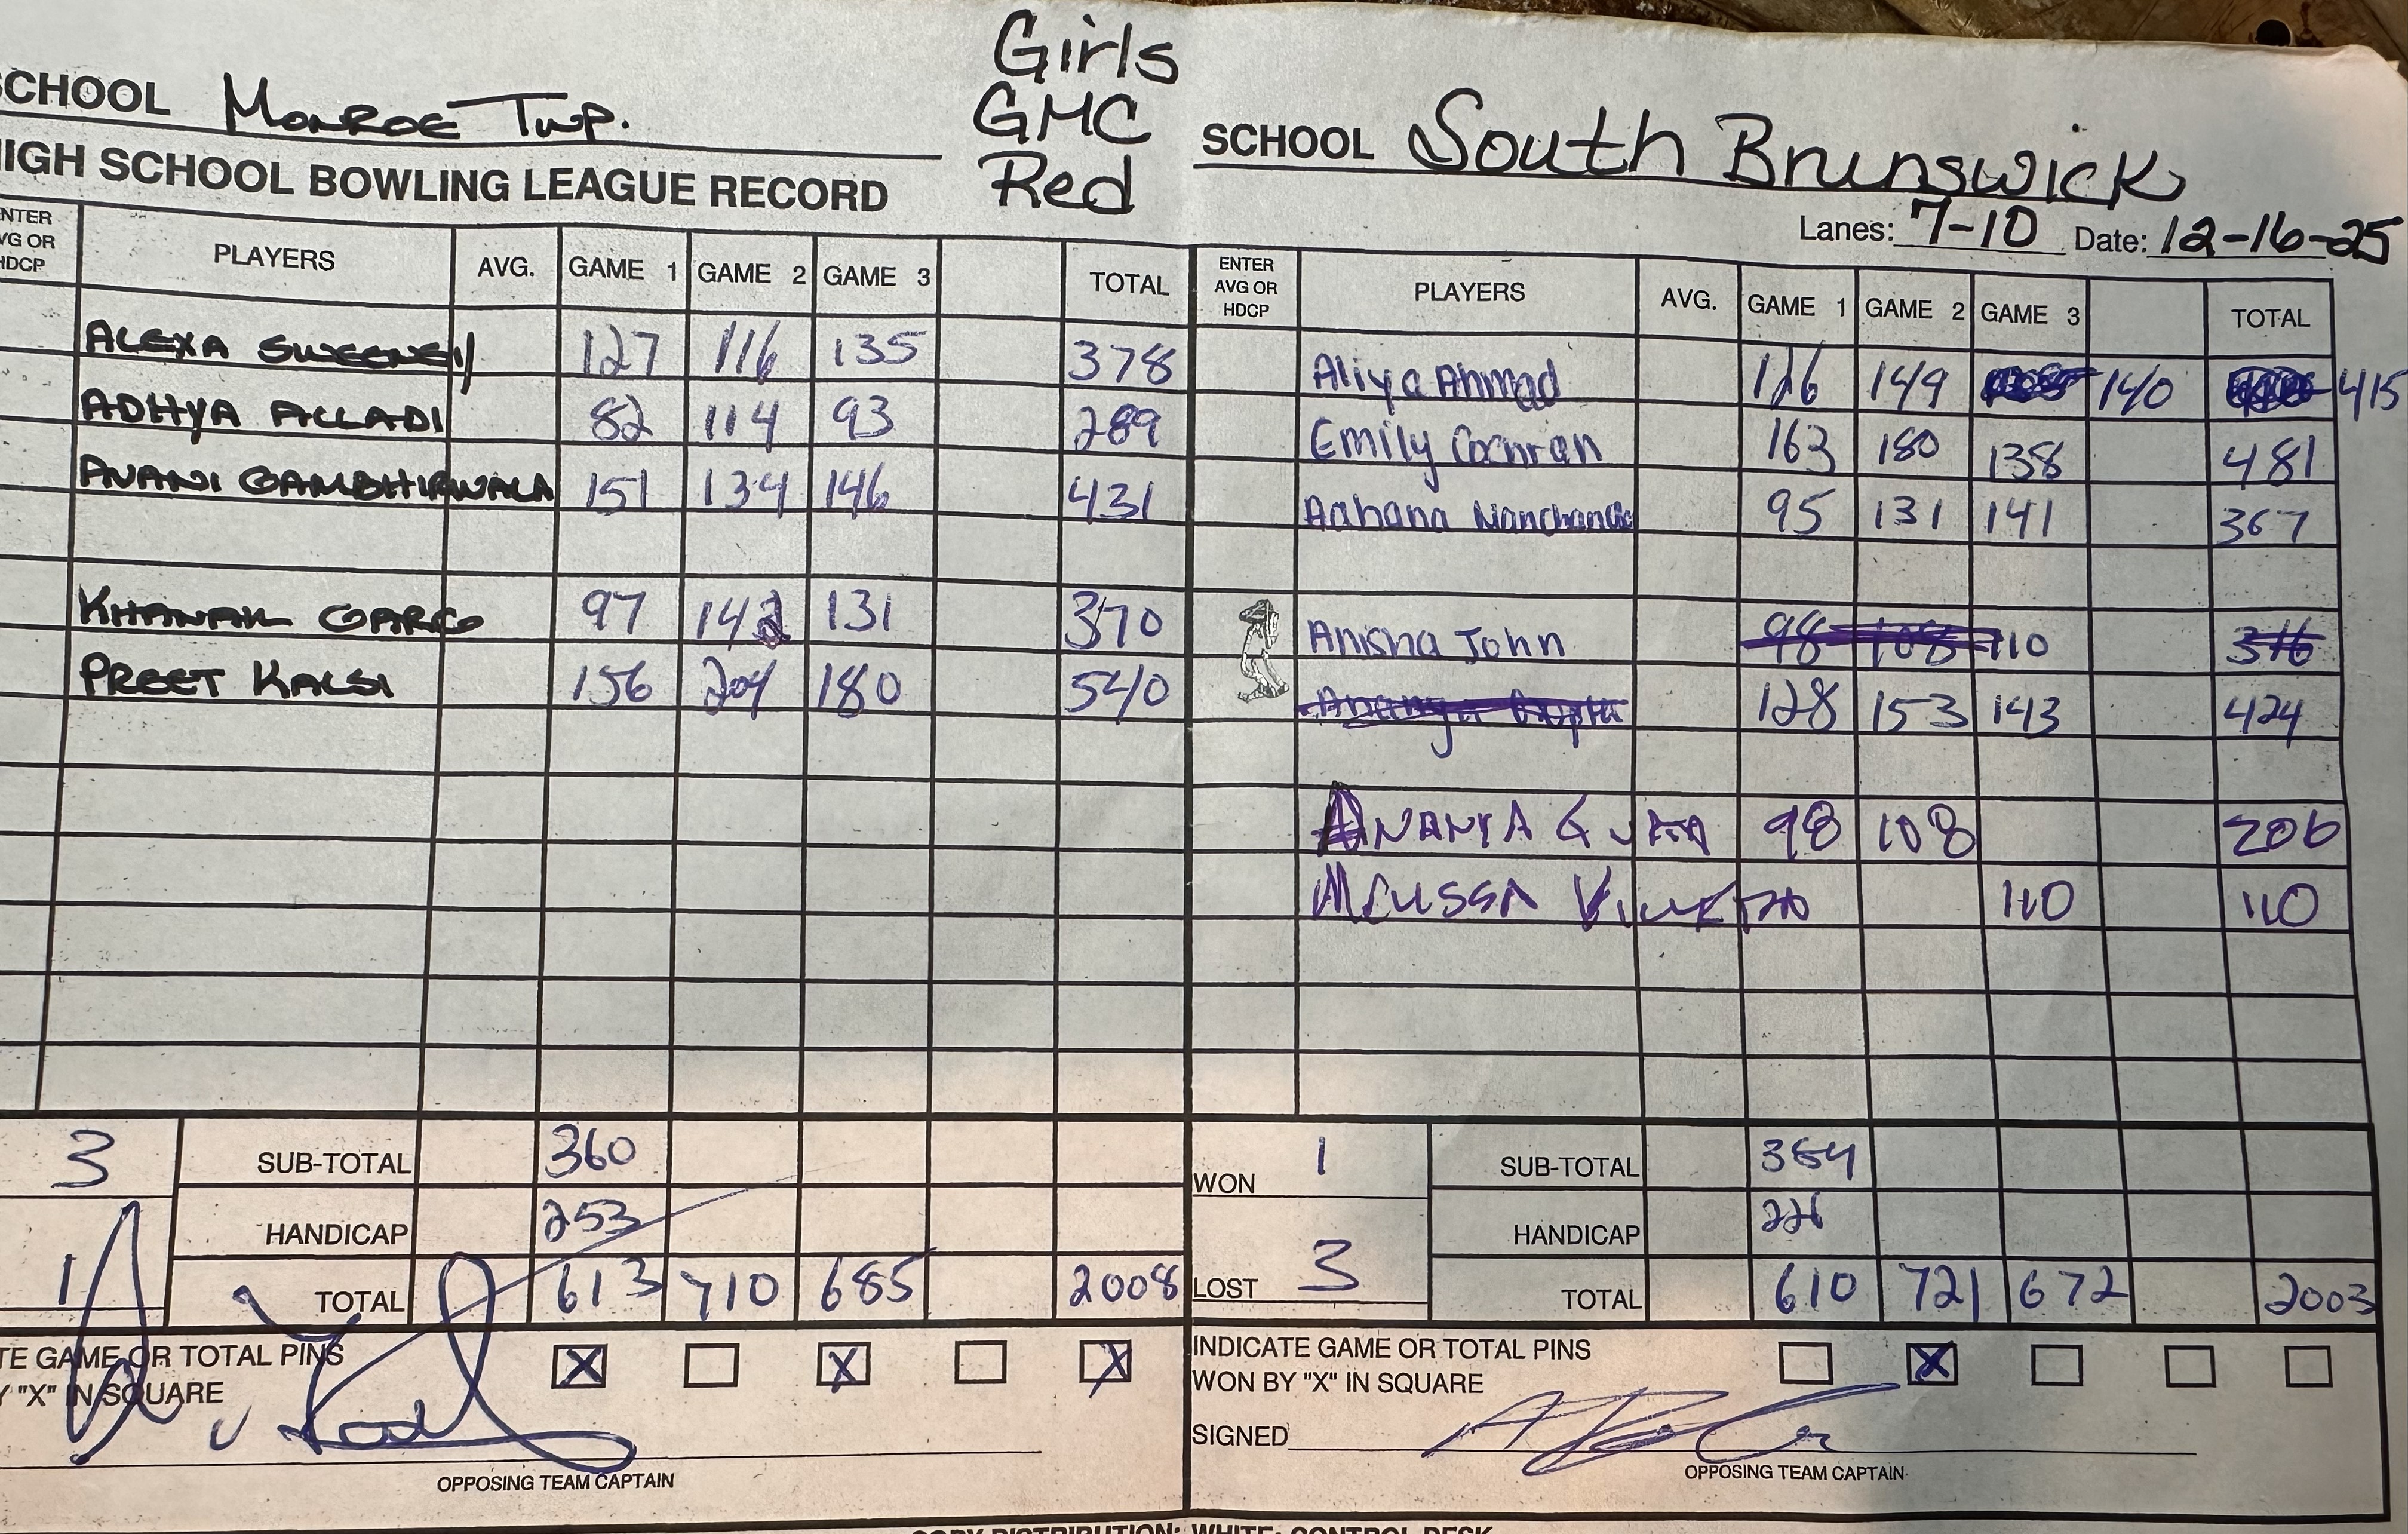 Girls
GMC
Red
SCHOOL Monroe Twp.
HIGH SCHOOL BOWLING LEAGUE RECORD
ENTER AVG OR HDCP PLAYERS AVG. GAME 1 GAME 2 GAME 3 TOTAL
ALEXA SWEENEY 127 116 135 378
ADHYA ALLADI 82 114 93 289
AVANI GAMBHIRWALA 151 134 146 431
KHANAK GARG 97 142 131 370
PREET KALSI 156 204 180 540
3 SUB-TOTAL 360
HANDICAP 253
1 TOTAL 613 710 685 2008
TE GAME OR TOTAL PINS X X X
Y "X" IN SQUARE
OPPOSING TEAM CAPTAIN
SCHOOL South Brunswick
Lanes: 7-10 Date: 12-16-25
ENTER AVG OR HDCP PLAYERS AVG. GAME 1 GAME 2 GAME 3 TOTAL
Aliya Ahmad 126 149 140 415
Emily Cochran 163 180 138 481
Aahana Manchanda 95 131 141 367
Anisha John 98 108 110 316
Ananya Gupta 128 153 143 424
ANANYA GUPTA 98 108 206
MELISSA 110 110
WON 1 SUB-TOTAL 384
HANDICAP 226
LOST 3 TOTAL 610 721 672 2003
INDICATE GAME OR TOTAL PINS X
WON BY "X" IN SQUARE
SIGNED
OPPOSING TEAM CAPTAIN
COPY DISTRIBUTION: WHITE: CONTROL DESK